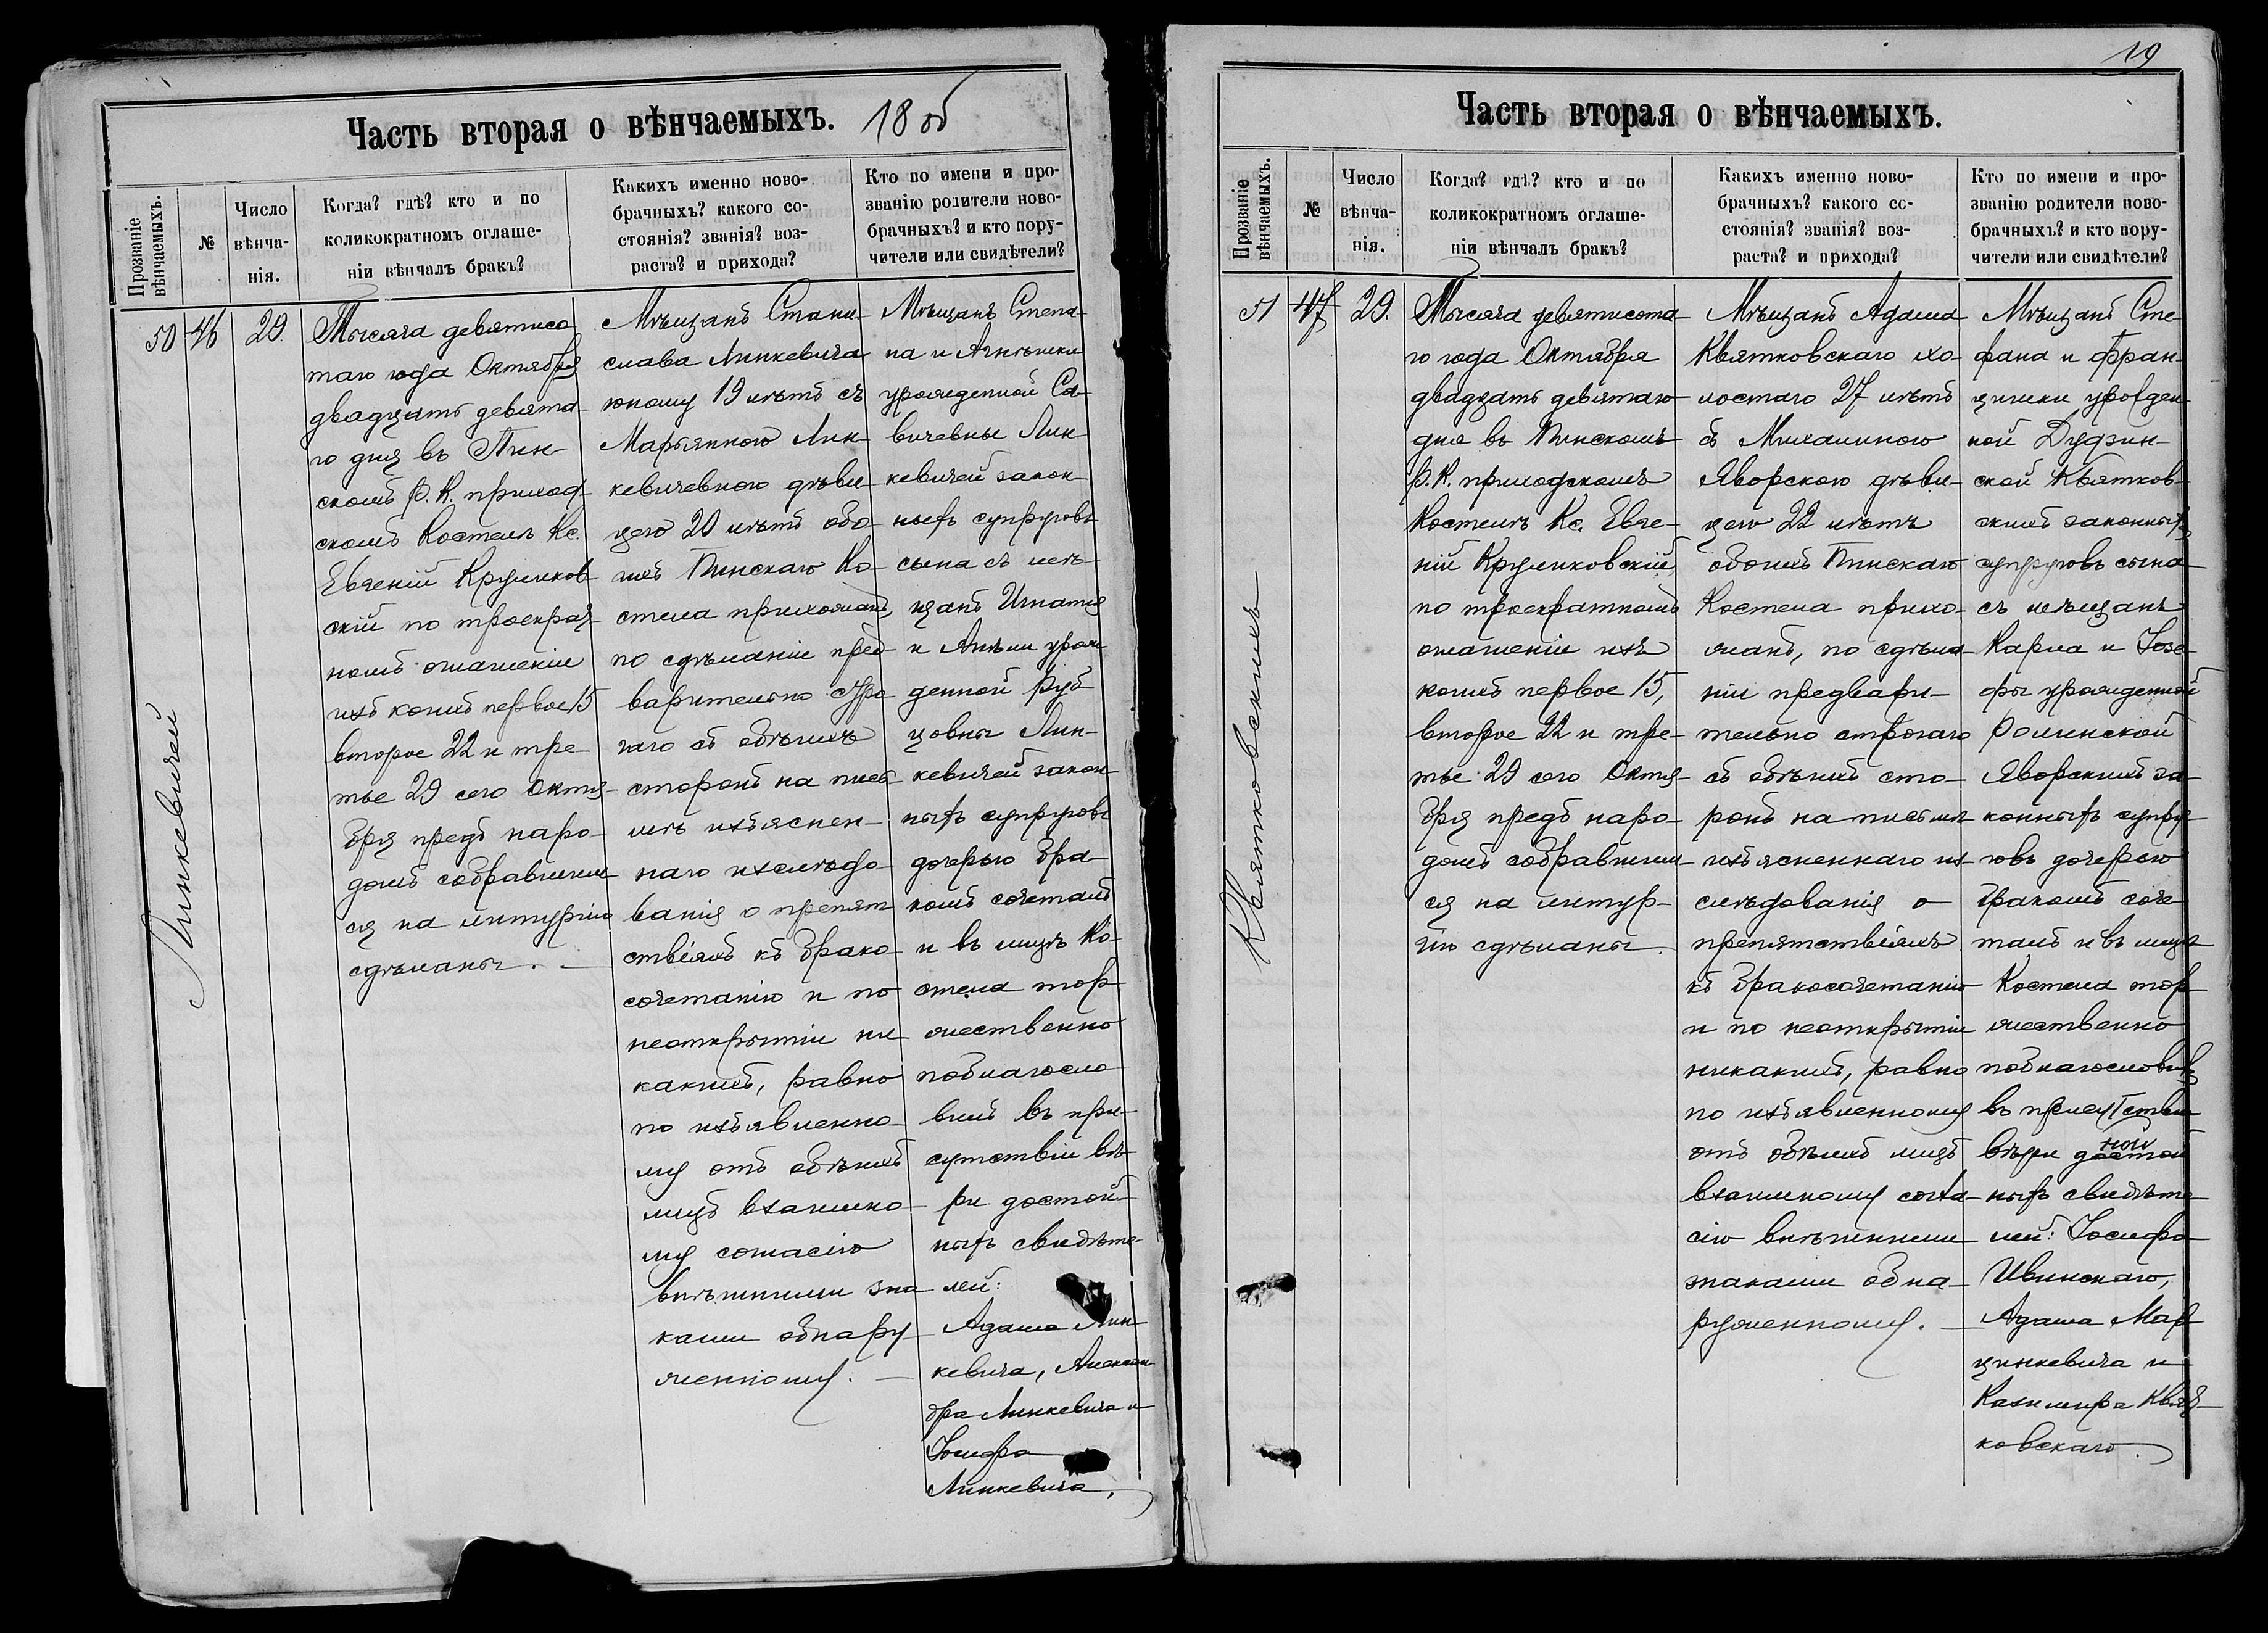 Часть вторая о вѣнчаемыхъ. 18 об
Прозваніе вѣнчаемыхъ.
№
Число вѣнча-
нія.
Когда? гдѣ? кто и по
коликократномъ оглаше-
ніи вѣнчалъ бракъ?
Какихъ именно ново-
брачныхъ? какого со-
стоянія? званія? воз-
раста? и прихода?
Кто по имени и про-
званію родители ново-
брачныхъ? и кто пору-
чители или свидѣтели?
Линкевичей
50
46
29.
Тысяча девятисо
таго года Октября
двадцать девята-
го дня въ Пин-
скомъ Р. К. приход-
скомъ Костелѣ Кс.
Евгеній Круликов-
скій по троекрат-
номъ оглашеніи
изъ коихъ первое 15
второе 22 и тре-
тье 29 сего Октя-
бря предъ наро-
домъ собравшим-
ся на литургію
сдѣланы. —
Мѣщанъ Стани-
слава Линкевича
юношу 19 лѣтъ съ
Марьянною Лин-
кевичевною дѣви-
цею 20 лѣтъ обо-
ихъ Пинскаго Ко-
стела прихожанъ,
по сдѣланіи пред-
варительно стро-
гаго съ обѣихъ
сторонъ на пись-
мѣ изъяснен-
наго изслѣдо-
ванія о препят-
ствіяхъ къ брако-
сочетанію и по
неоткрытіи ни-
какихъ, равно
по изъявленно-
му отъ обѣихъ
лицъ взаимно-
му согласію
внѣшними зна-
ками обнару-
женному. —
Мѣщанъ Степа-
на и Агнѣшки
урожденной Са-
вичевны Лин-
кевичей закон-
ныхъ супруговъ
сына съ мѣ-
щанъ Игнатія
и Анели урож-
денной Руб-
цовны Лин-
кевичей закон-
ныхъ супруговъ
дочерью бра-
комъ сочеталъ
и въ лицѣ Ко-
стела тор-
жественно
поблагосло-
вилъ въ при-
сутствіи вѣ-
ры достой-
ныхъ свидѣте-
лей:
Адама Лин-
кевича, Алексан-
дра Линкевича и
Іосифа
Линкевича.
19
Часть вторая о вѣнчаемыхъ.
Прозваніе вѣнчаемыхъ.
№
Число вѣнча-
нія.
Когда? гдѣ? кто и по
коликократномъ оглаше-
ніи вѣнчалъ бракъ?
Какихъ именно ново-
брачныхъ? какого со-
стоянія? званія? воз-
раста? и прихода?
Кто по имени и про-
званію родители ново-
брачныхъ? и кто пору-
чители или свидѣтели?
Квятковскихъ
51
47
29.
Тысяча девятисота-
го года Октября
двадцать девятаго
дня въ Пинскомъ
Р. К. приходскомъ
Костелѣ Кс. Евге-
ній Круликовскій,
по троекратномъ
оглашеніи изъ
коихъ первое 15,
второе 22 и тре-
тье 29 сего Октя-
бря предъ наро-
домъ собравшим-
ся на литур-
гію сдѣланы.
Мѣщанъ Адама
Квятковскаго хо-
лостаго 27 лѣтъ
съ Михалиною
Яворскою дѣви-
цею 22 лѣтъ
обоихъ Пинскаго
Костела прихо-
жанъ, по сдѣла-
ніи предвари-
тельно строгаго
съ обѣихъ сто-
ронъ на письмѣ
изъясненнаго из-
слѣдованія о
препятствіяхъ
къ бракосочетанію
и по неоткрытіи
никакихъ, равно
по изъявленному
отъ обѣихъ лицъ
взаимному согла-
сію внѣшними
знаками обна-
руженному. —
Мѣщанъ Сте-
фана и Фран-
цишки урожден-
ной Дудзин-
ской Квятков-
скихъ законныхъ
супруговъ сына
съ мѣщанъ
Карла и Іозе-
фы урожденной
Яворскихъ за-
конныхъ супру-
говъ дочерью
бракомъ соче-
талъ и въ лицѣ
Костела тор-
жественно
поблагословилъ
въ присутствіи
вѣры достой
ныхъ свидѣте-
лей: Іосифа
Ивинскаго,
Адама Мар-
цинкевича и
Казимира Квят-
ковскаго.